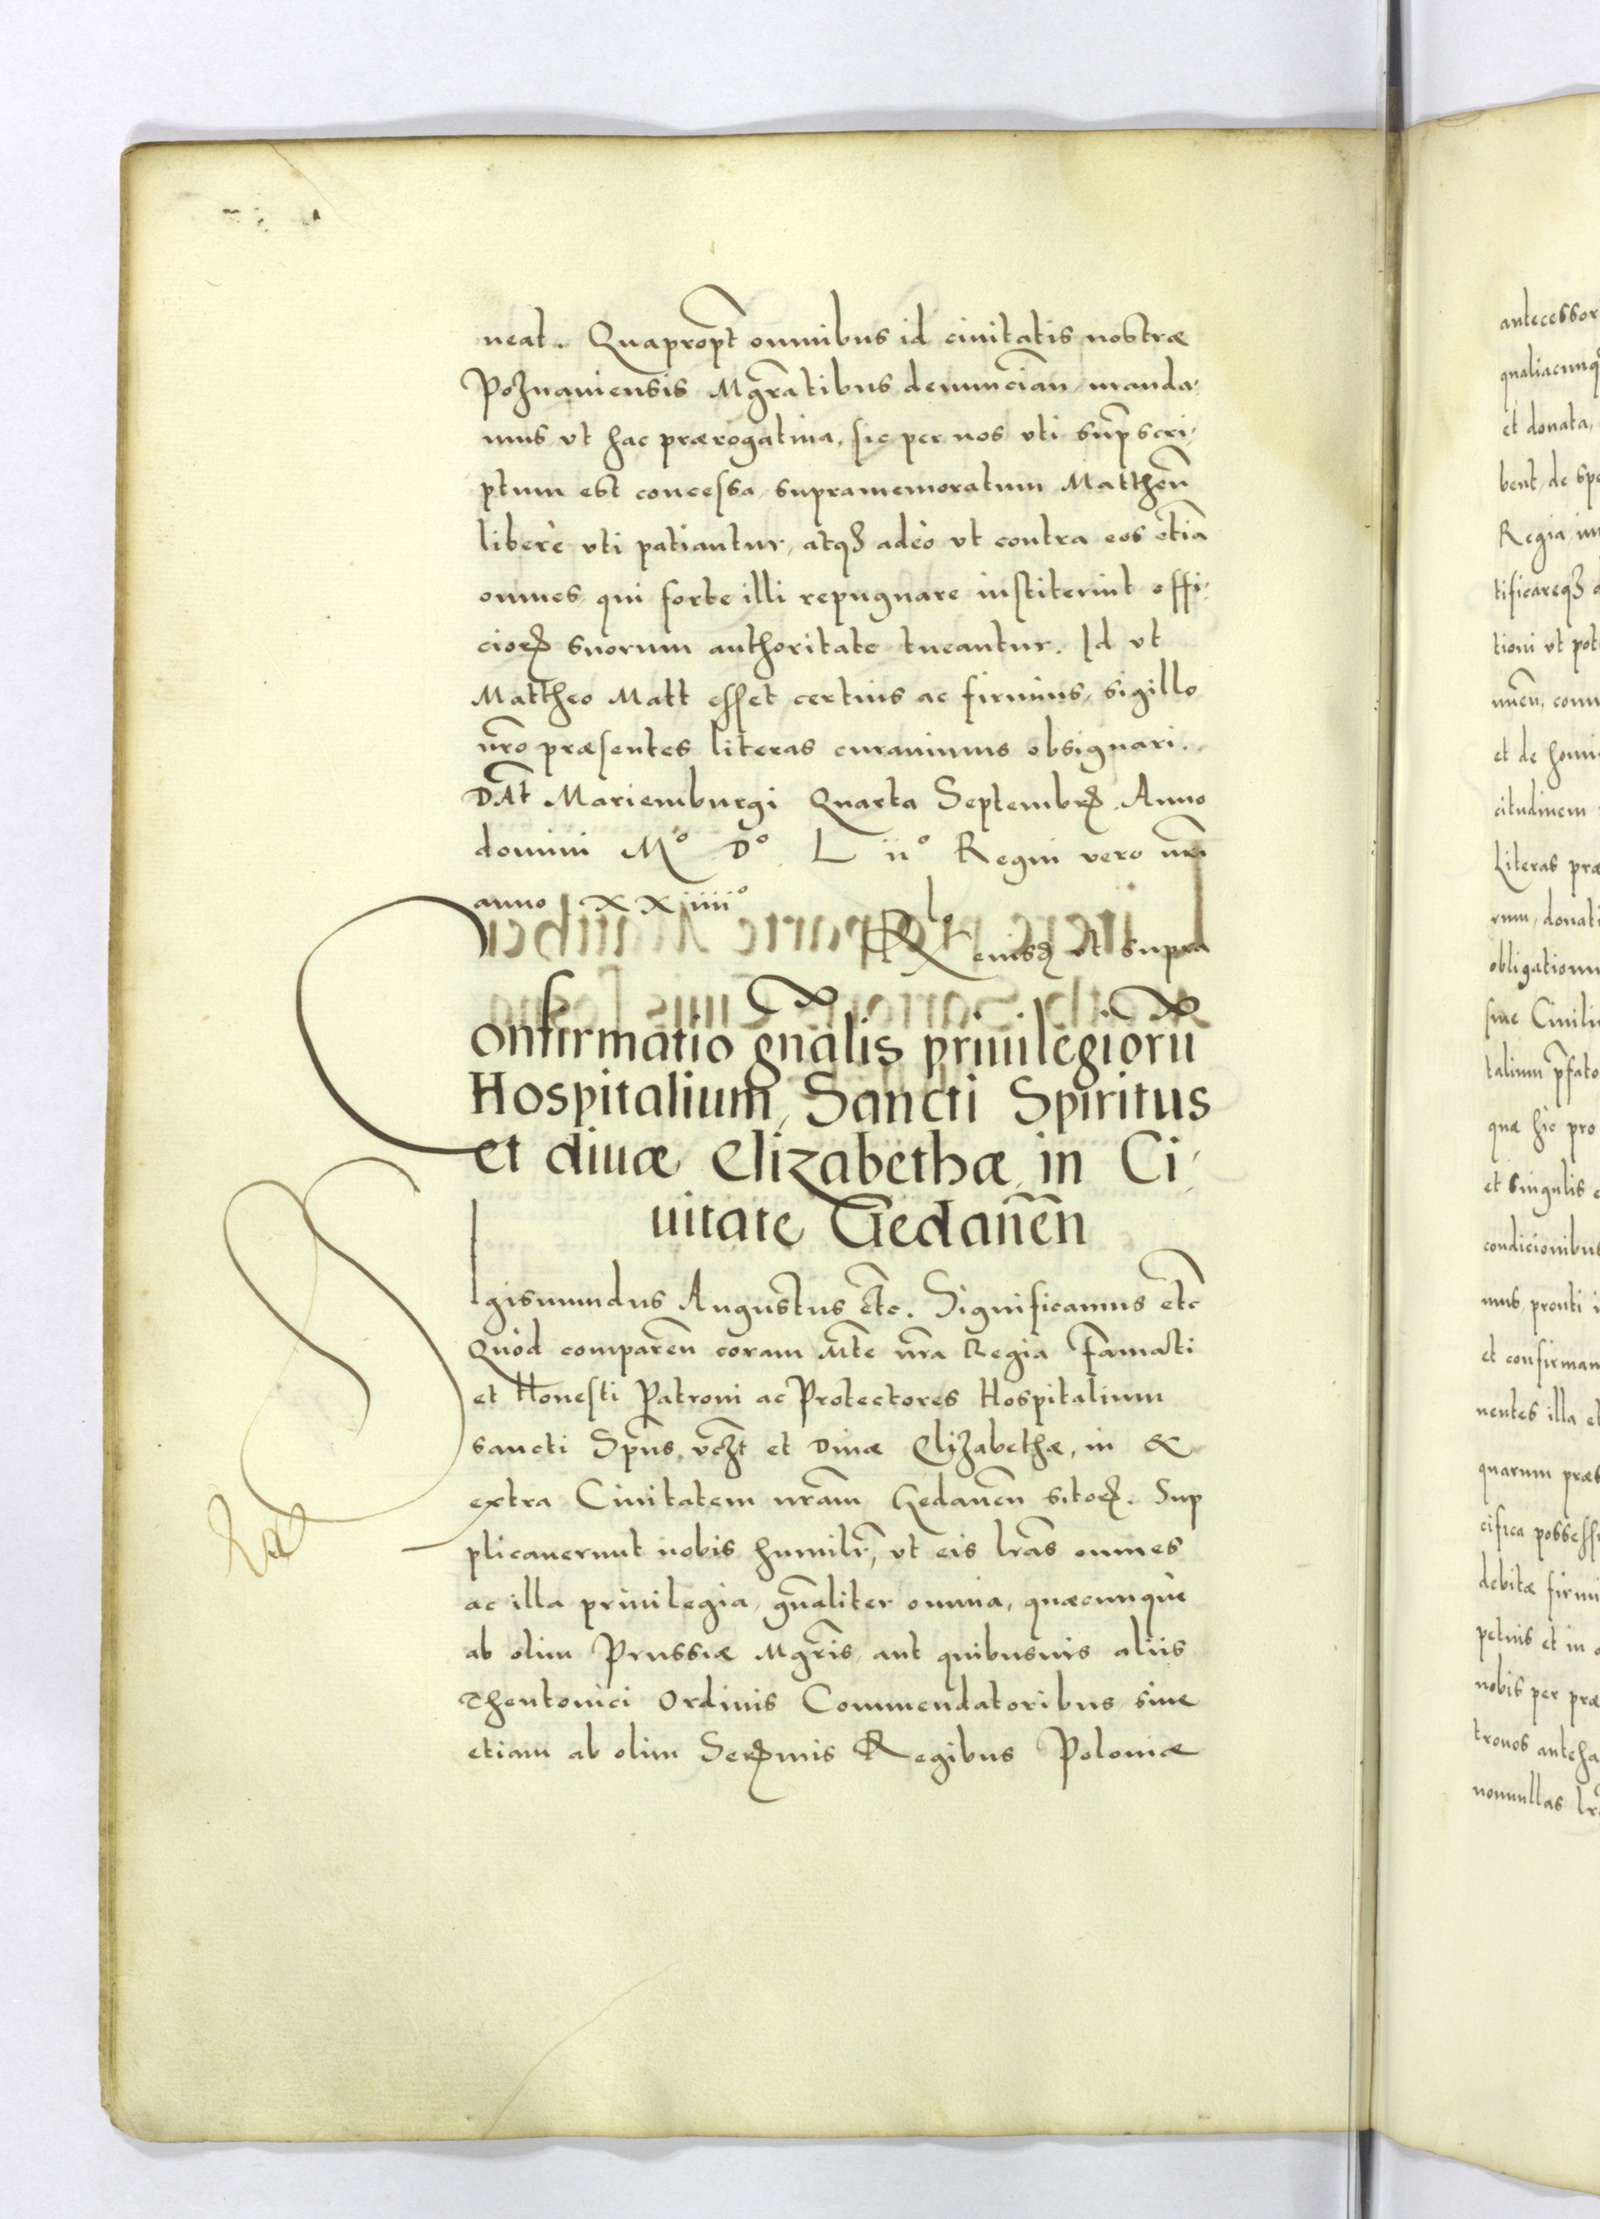 neat. Quapropt omnibus id ciuitatis nostræ
Poznaniensis Mgratibus denuncian, manda-
mus vt hac prærogatiua, sic per nos vti supscri-
ptum est concessa, supramemoratum Mattheu
liberè vti patiantur, atqȝ adeò vt contra eos etia
omnes, qui forte illi repugnare institerint offi-
cioꝝ suorum authoritate tueantur. Id vt
Mattheo Matt esset certius ac firmius, sigillo
nro præsentes literas curauimus obsignari.
Dat Mariemburgi Quarta Septembrꝭ. Anno
domini Mº Dº L iiº Regni vero nri
anno XXiiiiº
Rlo eiusꝫ vt supra
Confirmatio gnalis priuilegioru
Hospitalium, Sancti Spiritus
et diuæ Elizabethæ, in Ci-
uitate Gedanen
SIgismundus Augustus etc. Significamus etc
Quòd comparen coram Mte nra Regia Famati
et Honesti Patroni ac Protectores Hospitalium
sancti Spus, vczt et Diuæ Elizabethæ, in &
extra Ciuitatem nram Gedanen sitoꝝ. Sup
plicauerunt nobis humilr, vt eis lras omnes
ac illa priuilegia, gnaliter omnia, quæcunquè
ab olim Prussiæ Mgris, aut quibusuis aliis
Theutonici Ordinis Commendatoribus, siue
etiam ab olim Serꝫmis Regibus Poloniæ
antecessor
qualiacunqȝ
et donata,
bent, de spe
Regia, im
tificareqȝ
tioni vt pot
et de homi
citudinem
Literas præ
rum, donati
obligationu
siue Ciuili
talium pfato
quæ hic pro
et singulis
condicionibus
mus, prouti i
et confirman
nentes illa et
quarum præs
cifica possessi
debitæ firmi
petuis et in
nobis per præ
tronos anteha
nonnullas lr